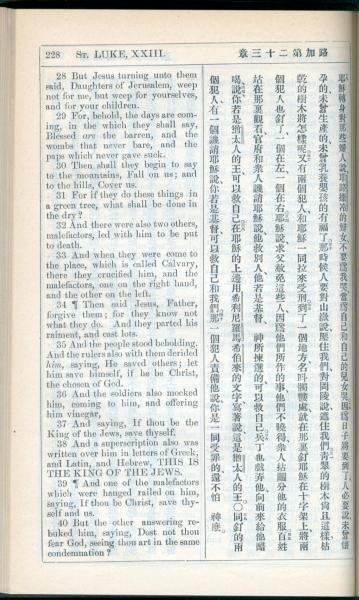 228 ST. LUKE, XXIII.
28 But Jesus turning unto them
said, Daughters of Jerusalem, weep
not for me, but weep for yourselves,
and for your children.
29 For, behold, the days are com-
ing, in the which they shall say,
Blessed are the barren, and the
wombs that never bare, and the
paps which never gave suck.
30 Then shall they begin to say
to the mountains, Fall on us; and
to the hills, Cover us.
31 For if they do these things in
a green tree, what shall be done in
the dry?
32 And there were also two others,
malefactors, led with him to be put
to death.
33 And when they were come to
the place, which is called Calvary,
there they crucified him, and the
malefactors, one on the right hand,
and the other on the left.
34 ¶ Then said Jesus, Father,
forgive them; for they know not
what they do. And they parted his
raiment, and cast lots.
35 And the people stood beholding.
And the rulers also with them derided
him, saying, He saved others; let
him save himself, if he be Christ,
the chosen of God.
36 And the soldiers also mocked
him, coming to him, and offering
him vinegar,
37 And saying, If thou be the
King of the Jews, save thyself.
38 And a superscription also was
written over him in letters of Greek,
and Latin, and Hebrew, THIS IS
THE KING OF THE JEWS.
39 ¶ And one of the malefactors
which were hanged railed on him,
saying, If thou be Christ, save thy-
self and us.
40 But the other answering re-
buked him, saying, Dost not thou
fear God, seeing thou art in the same
condemnation?
路加第二十三章
耶穌轉身對那些婦人說耶路撒冷的婦女不要爲我哭當爲自己和自己的兒女哭因爲日子將要到了人必要說未曾懷
孕的未曾生產的未曾乳養嬰孩的有福了那時候人要對山嶽說壓住我們對岡陵說遮住我們靑翠的樹木尙且這樣枯
乾的樹木將怎樣呢又有兩個犯人和耶穌一同拉來受刑到了一個地方名叫髑髏處就在那裏釘耶穌在十字架上將兩
個犯人也釘了一個在左一個在右耶穌說求父赦免這些人因爲他們所作的事他們不曉得衆人拈鬮分他的衣服百姓
站在那裏觀看官府和衆人譏誚耶穌說他救別人他若是基督神所揀選的可以救自己兵丁也戲弄他向前來給他醋
喝說你若是猶太人的王可以救自己在耶穌的上邊用希利尼羅馬希伯來的文字寫著說這是猶太人的王〇同釘的兩
個犯人有一個譏誚耶穌說你若是基督可以救自己和我們那一個犯人責備他說你是一同受罪的還不怕神麽